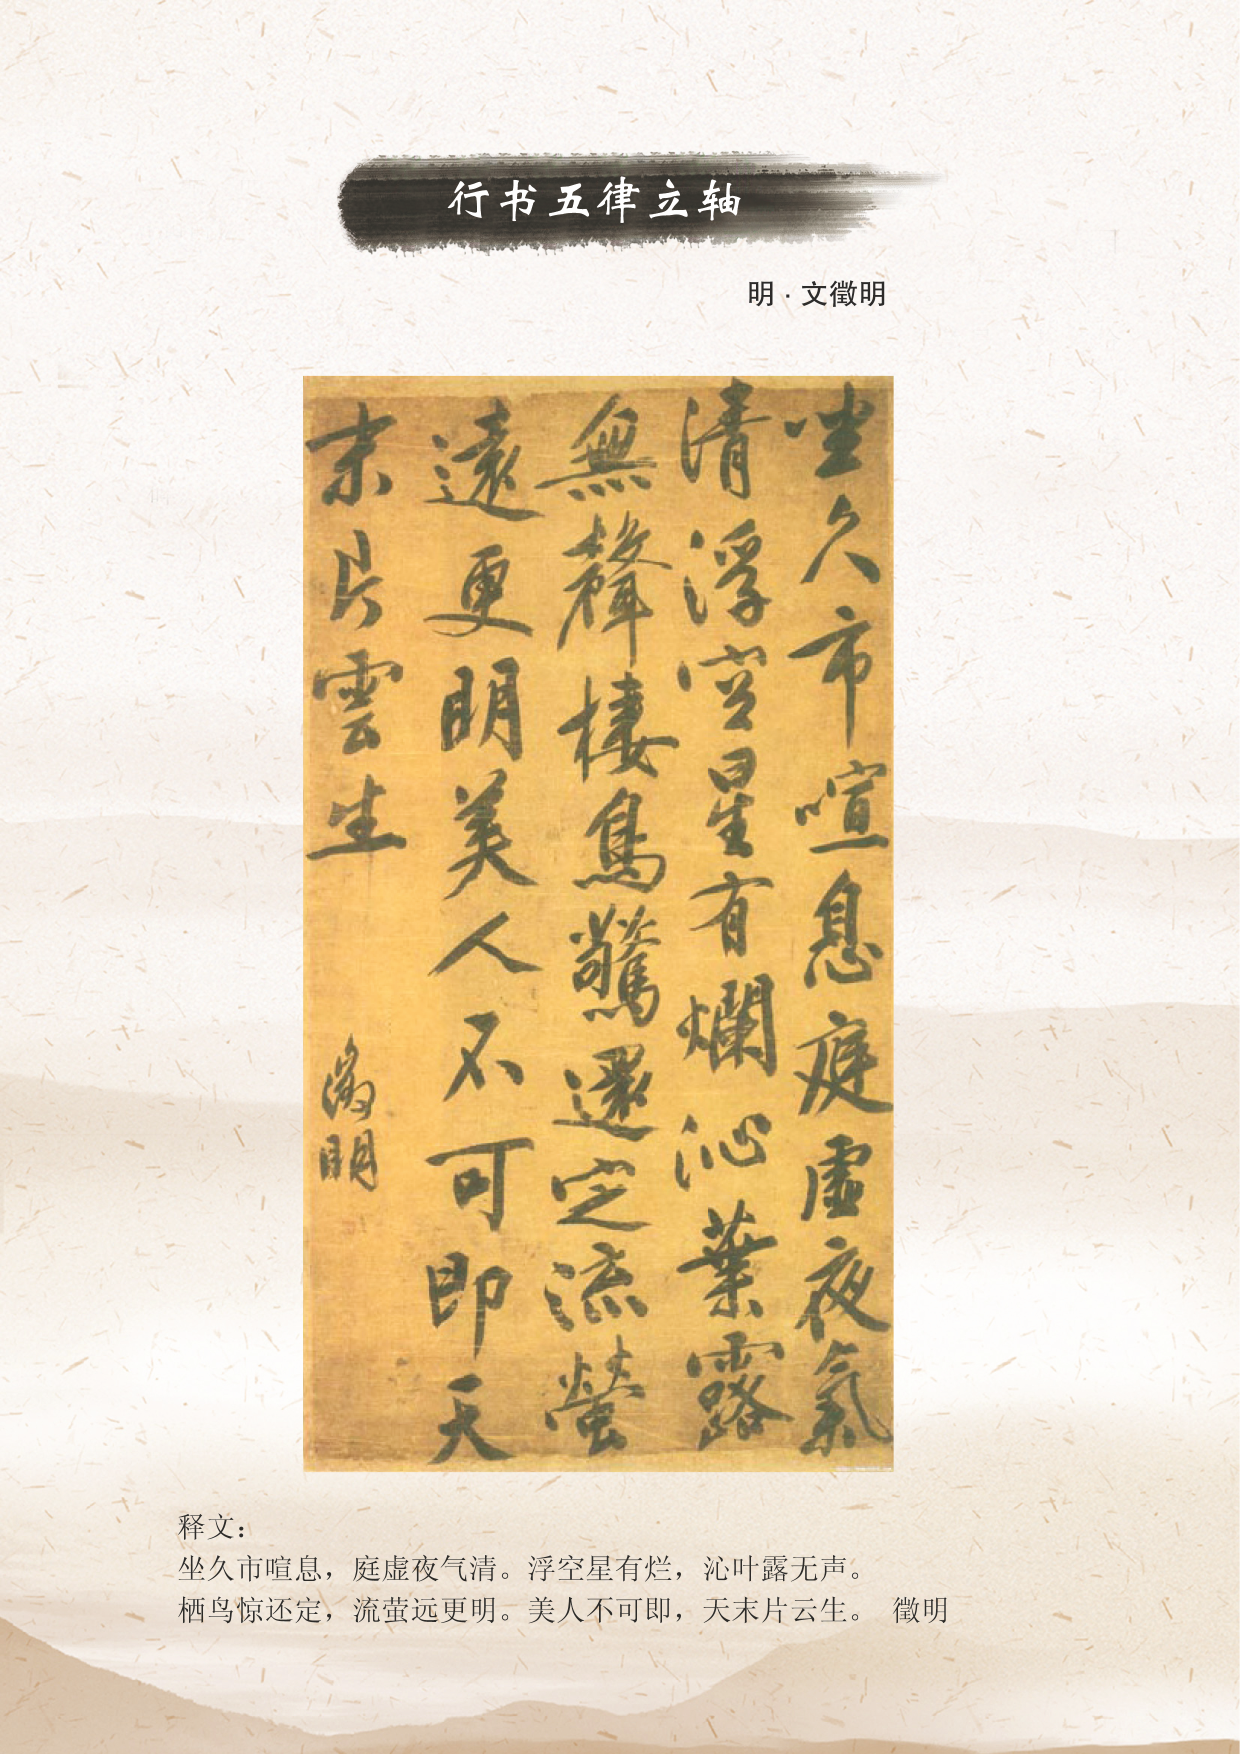 行书五律立轴
明·文徵明
坐久市喧息庭虚夜氣
清浮空星有爛沁葉露
無聲棲鳥驚還定流螢
遠更明美人不可即天
末片雲生
徵明
释文：
坐久市喧息，庭虚夜气清。浮空星有烂，沁叶露无声。
栖鸟惊还定，流萤远更明。美人不可即，天末片云生。 徵明